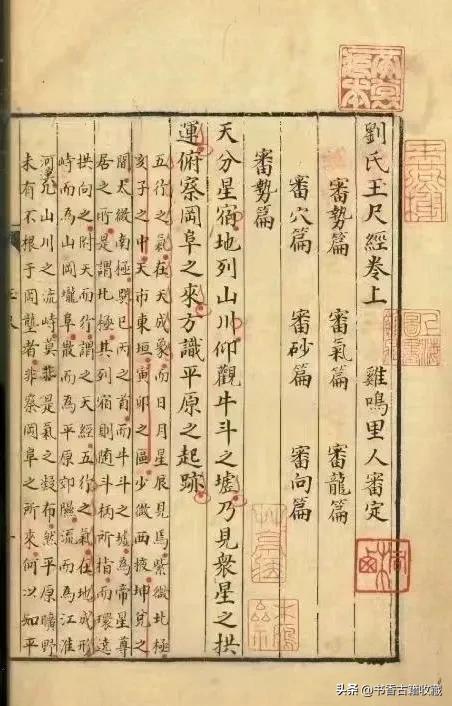 劉氏玉尺經卷上　雞鳴里人審定
審勢篇　審氣篇　審龍篇
審穴篇　審砂篇　審向篇
審勢篇
天分星宿地列山川仰觀牛斗之墟乃見衆星之拱
運俯察岡阜之來方識平原之起跡
五行之氣在天成象而日月星辰見焉紫微北極
亥子之中天市東垣寅卯之區少微西掖坤兌之
閒太微南極巽巳丙之首而牛斗之墟為帝星尊
居之所是謂北極其列宿則隨斗柄所指而環遶
拱向之附天而行謂之天經五行之氣在地成形
峙而為山岡壠阜散而為平原郊隰流而為江淮
河山川之流峙莫非是氣之凝布然平原曠野
未有不根于岡壟者非察岡阜之所來何以知平
头条 @书香古籍收藏